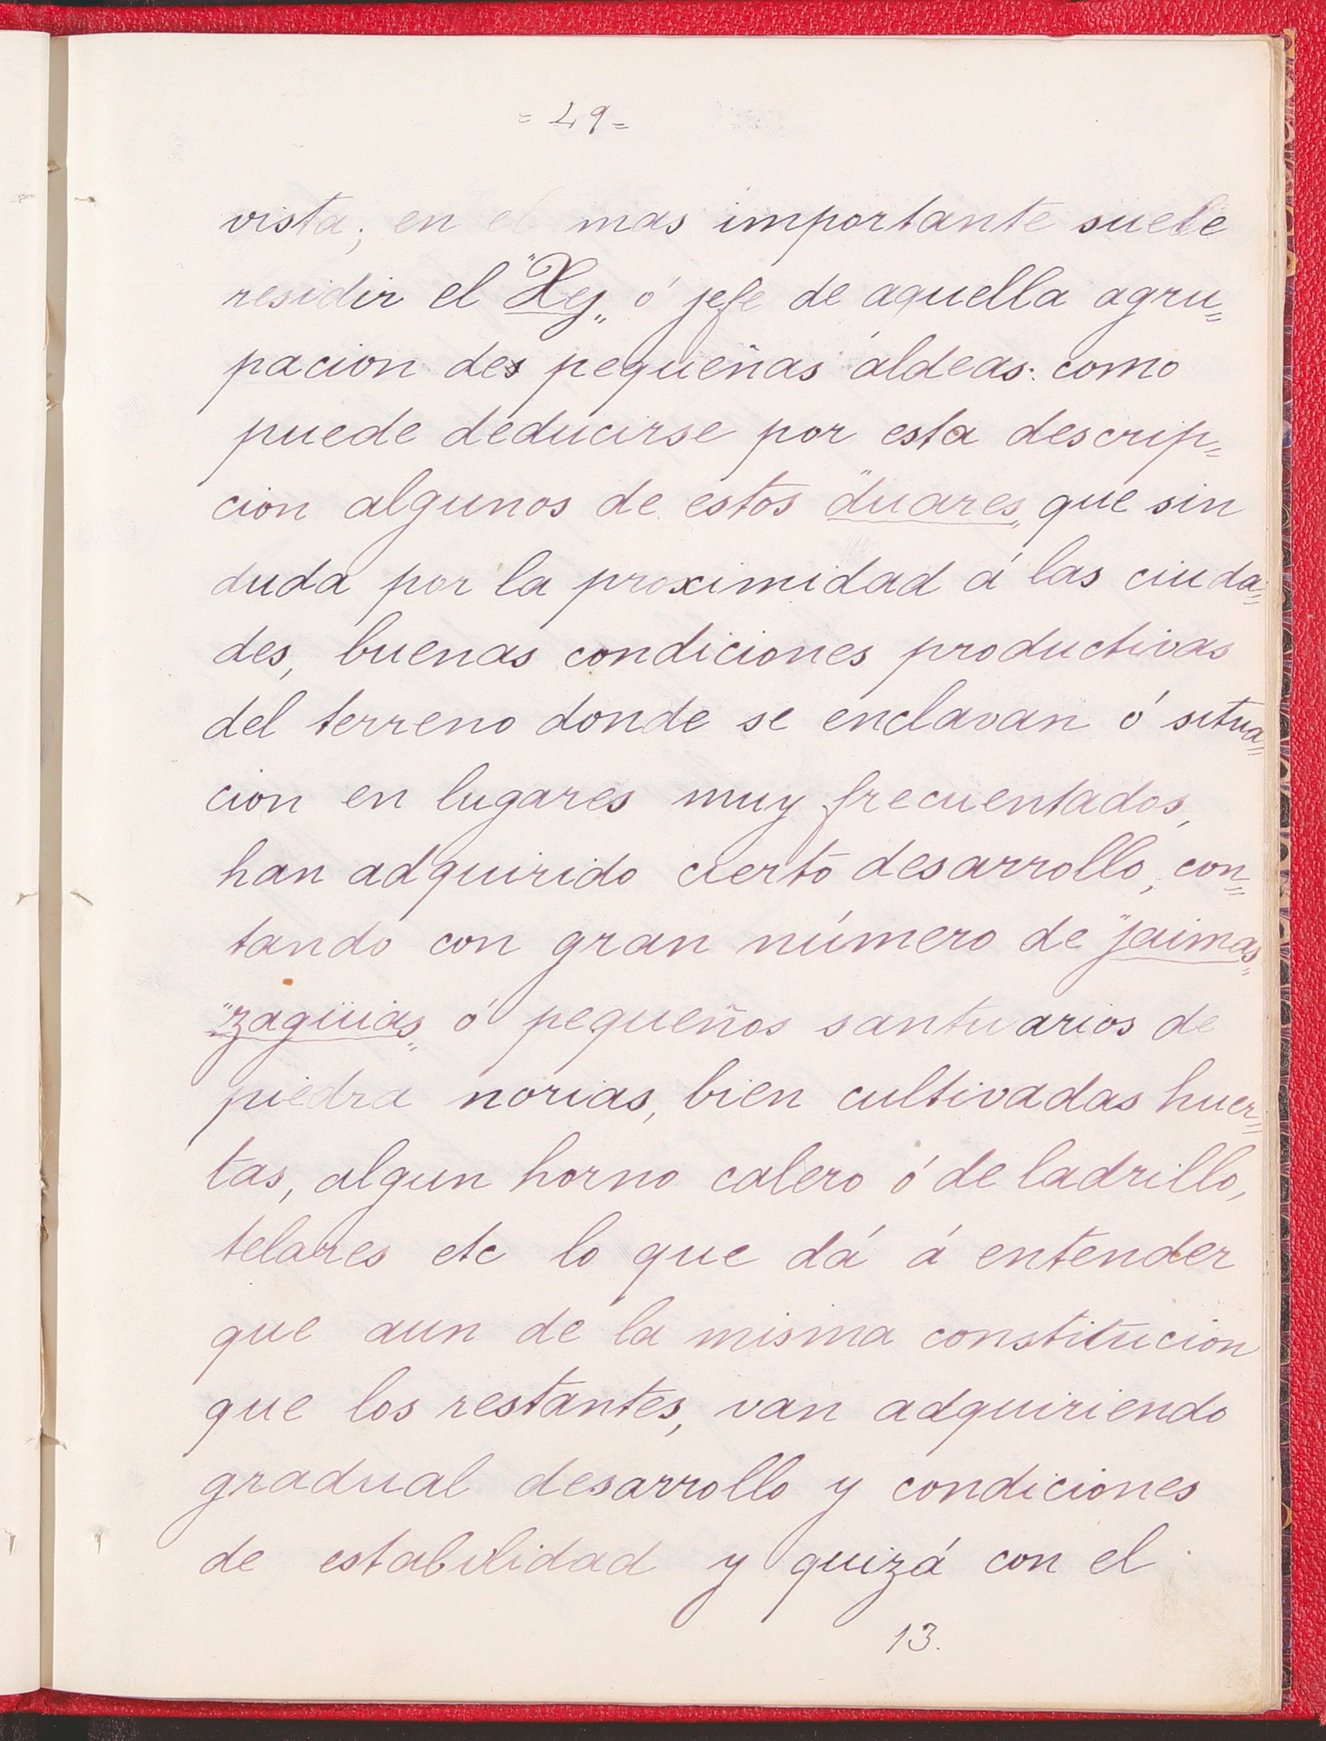 = 49 =
vista; en el mas importante suele
residir el "Xej„ ó jefe de aquella agru=
pacion des pequeñas aldeas: como
puede deducirse por esta descrip=
cion algunos de estos "duares„ que sin
duda por la proximidad á las ciuda=
des, buenas condiciones productivas
del terreno donde se enclavan ó situa=
cion en lugares muy frecuentados,
han adquirido cierto desarrollo, con=
tando con gran número de "jaimas„
"zagüias„ ó pequeños santuarios de
piedra norias, bien cultivadas huer=
tas, algun horno calero ó de ladrillo,
telares etc lo que dá á entender
que aun de la misma constitucion
que los restantes, van adquiriendo
gradual desarrollo y condiciones
de estabilidad y quizá con el
13.